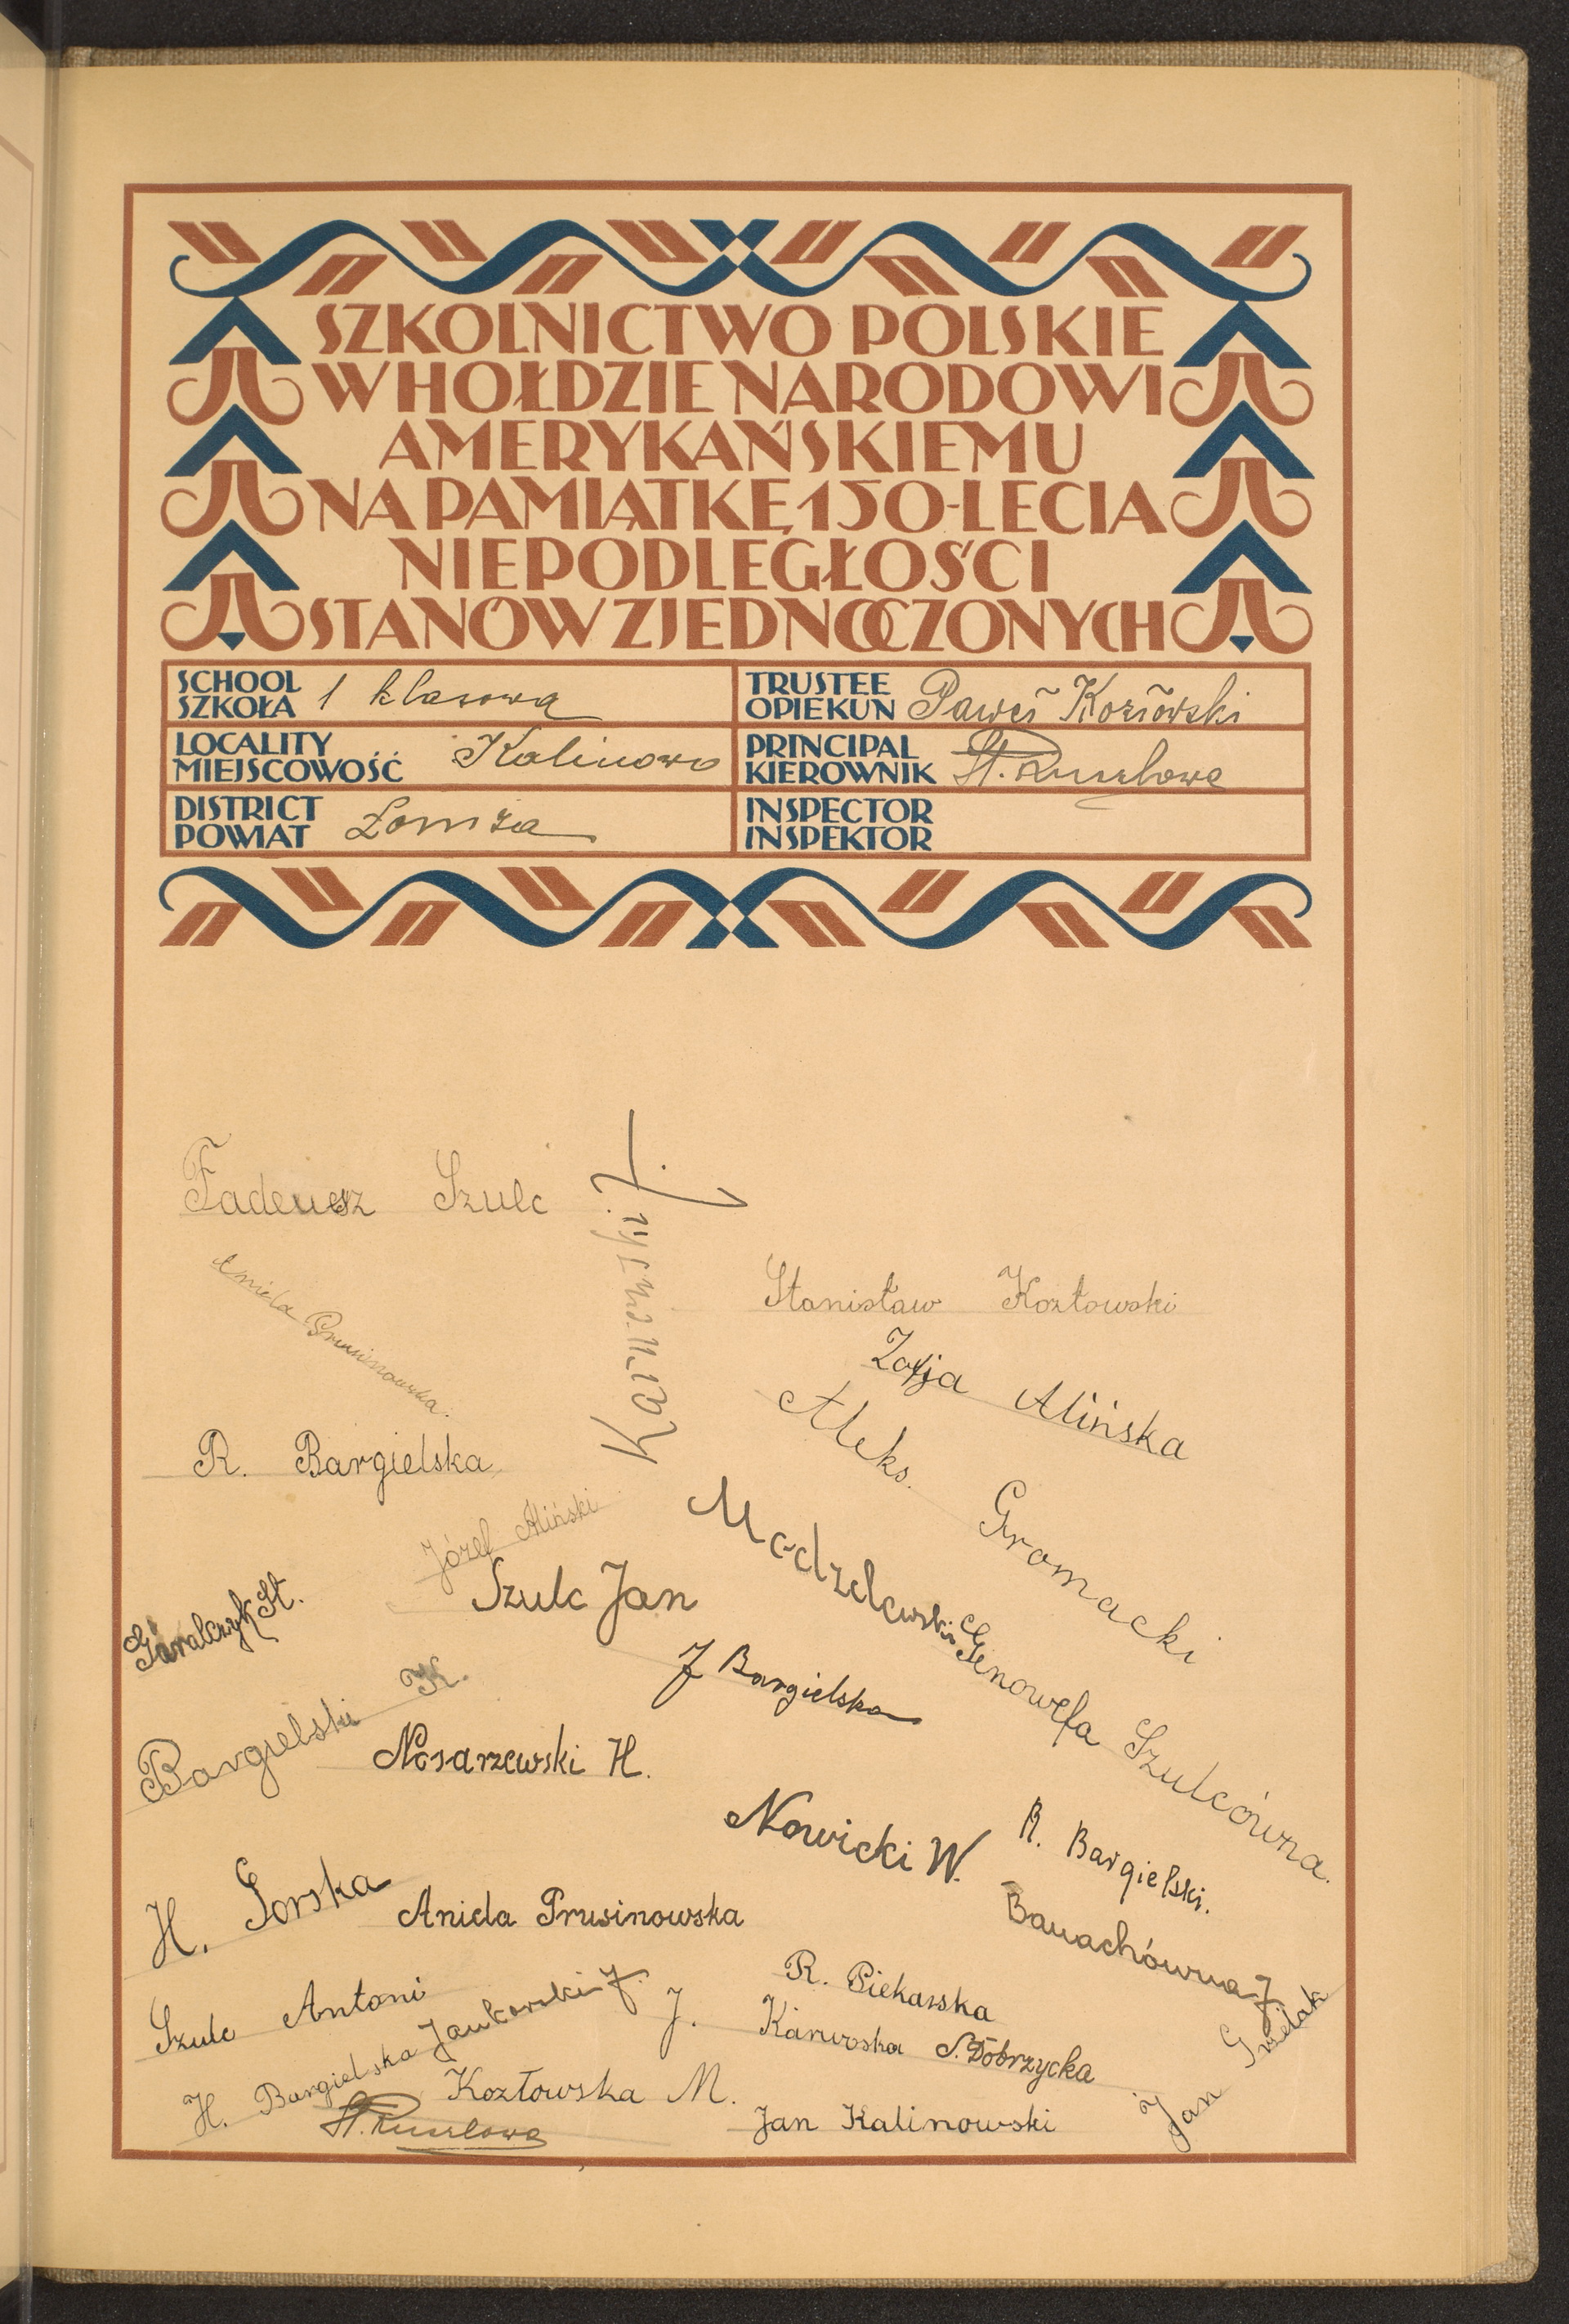 SZKOLNICTWO POLSKIE
W HOŁDZIE NARODOWI
AMERYKAŃSKIEMU
NA PAMIĄTKĘ 150-LECIA
NIEPODLEGŁOŚCI
STANÓW ZJEDNOCZONYCH
SCHOOL
SZKOŁA 1 klasowa
TRUSTEE
OPIEKUN Paweł Kozłowski
LOCALITY
MIEJSCOWOŚĆ Kalinowo
PRINCIPAL
KIEROWNIK St.
DISTRICT
POWIAT Łomża
INSPECTOR
INSPEKTOR
Tadeusz Szulc
Aniela Prusinowska.
Stanisław Kozłowski
Zofja Alińska
Aleks. Gromacki
R. Bargielska
Józef Aliński
Szulc Jan
Modzelewski
Genowefa Szulcówna.
Góralczyk St.
J Bargielska
Bargielski K.
Nosarzewski H.
Nowicki W.
R. Bargielski.
H. Gorska
Aniela Prusinowska
Banachówna J
Szulc Antoni
Jankowski J.
R. Piekarska
J. Karwoska
S. Dobrzycka
H. Bargielska
Kozłowska M.
Jan Kalinowski
Jan
St.